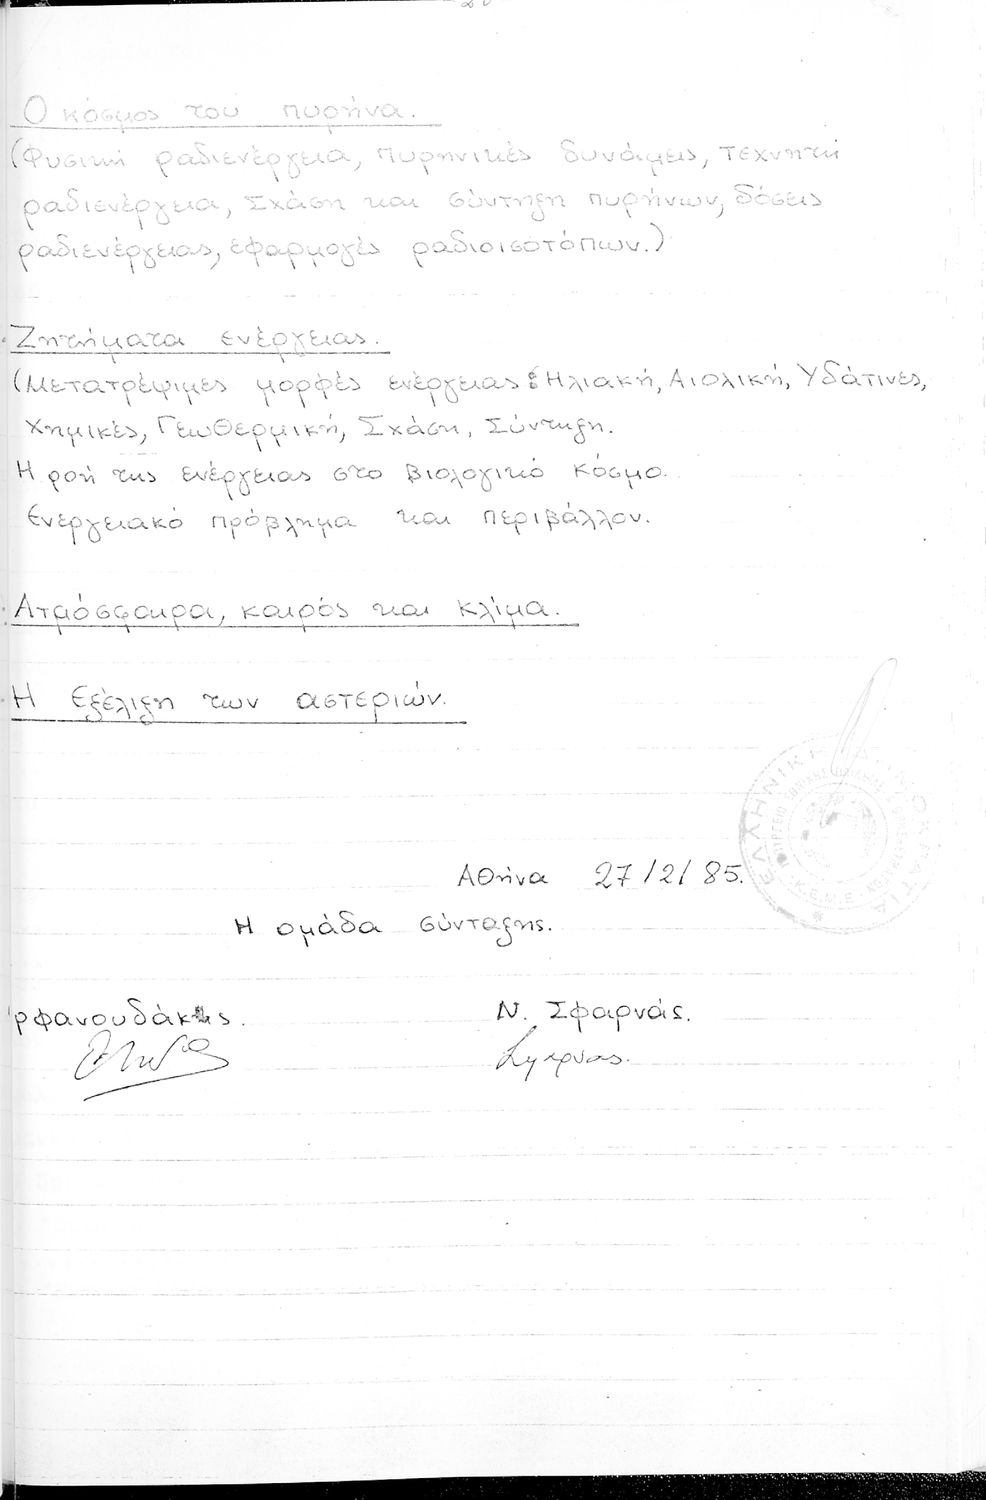 Ο κόσμος του πυρήνα.
(Φυσική ραδιενέργεια, πυρηνικές δυνάμεις, τεχνητή
ραδιενέργεια, Σχάση και σύντηξη πυρήνων, δόσεις
ραδιενέργειας, εφαρμογές ραδιοισοτόπων.)
Ζητήματα ενέργειας.
(Μετατρέψιμες μορφές ενέργειας: Ηλιακή, Αιολική, Υδάτινες,
Χημικές, Γεωθερμική, Σχάση, Σύντηξη.
Η ροή της ενέργειας στο βιολογικό κόσμο.
Ενεργειακό πρόβλημα και περιβάλλον.
Ατμόσφαιρα, καιρός και κλίμα.
Η Εξέλιξη των αστεριών.
ΕΛΛΗΝΙΚΗ ΔΗΜΟΚΡΑΤΙΑ
Κ.Ε.Μ.Ε.
Αθήνα 27/2/85.
Η ομάδα σύνταξης.
ρφανουδάκης. Ν. Σφαρνάς.